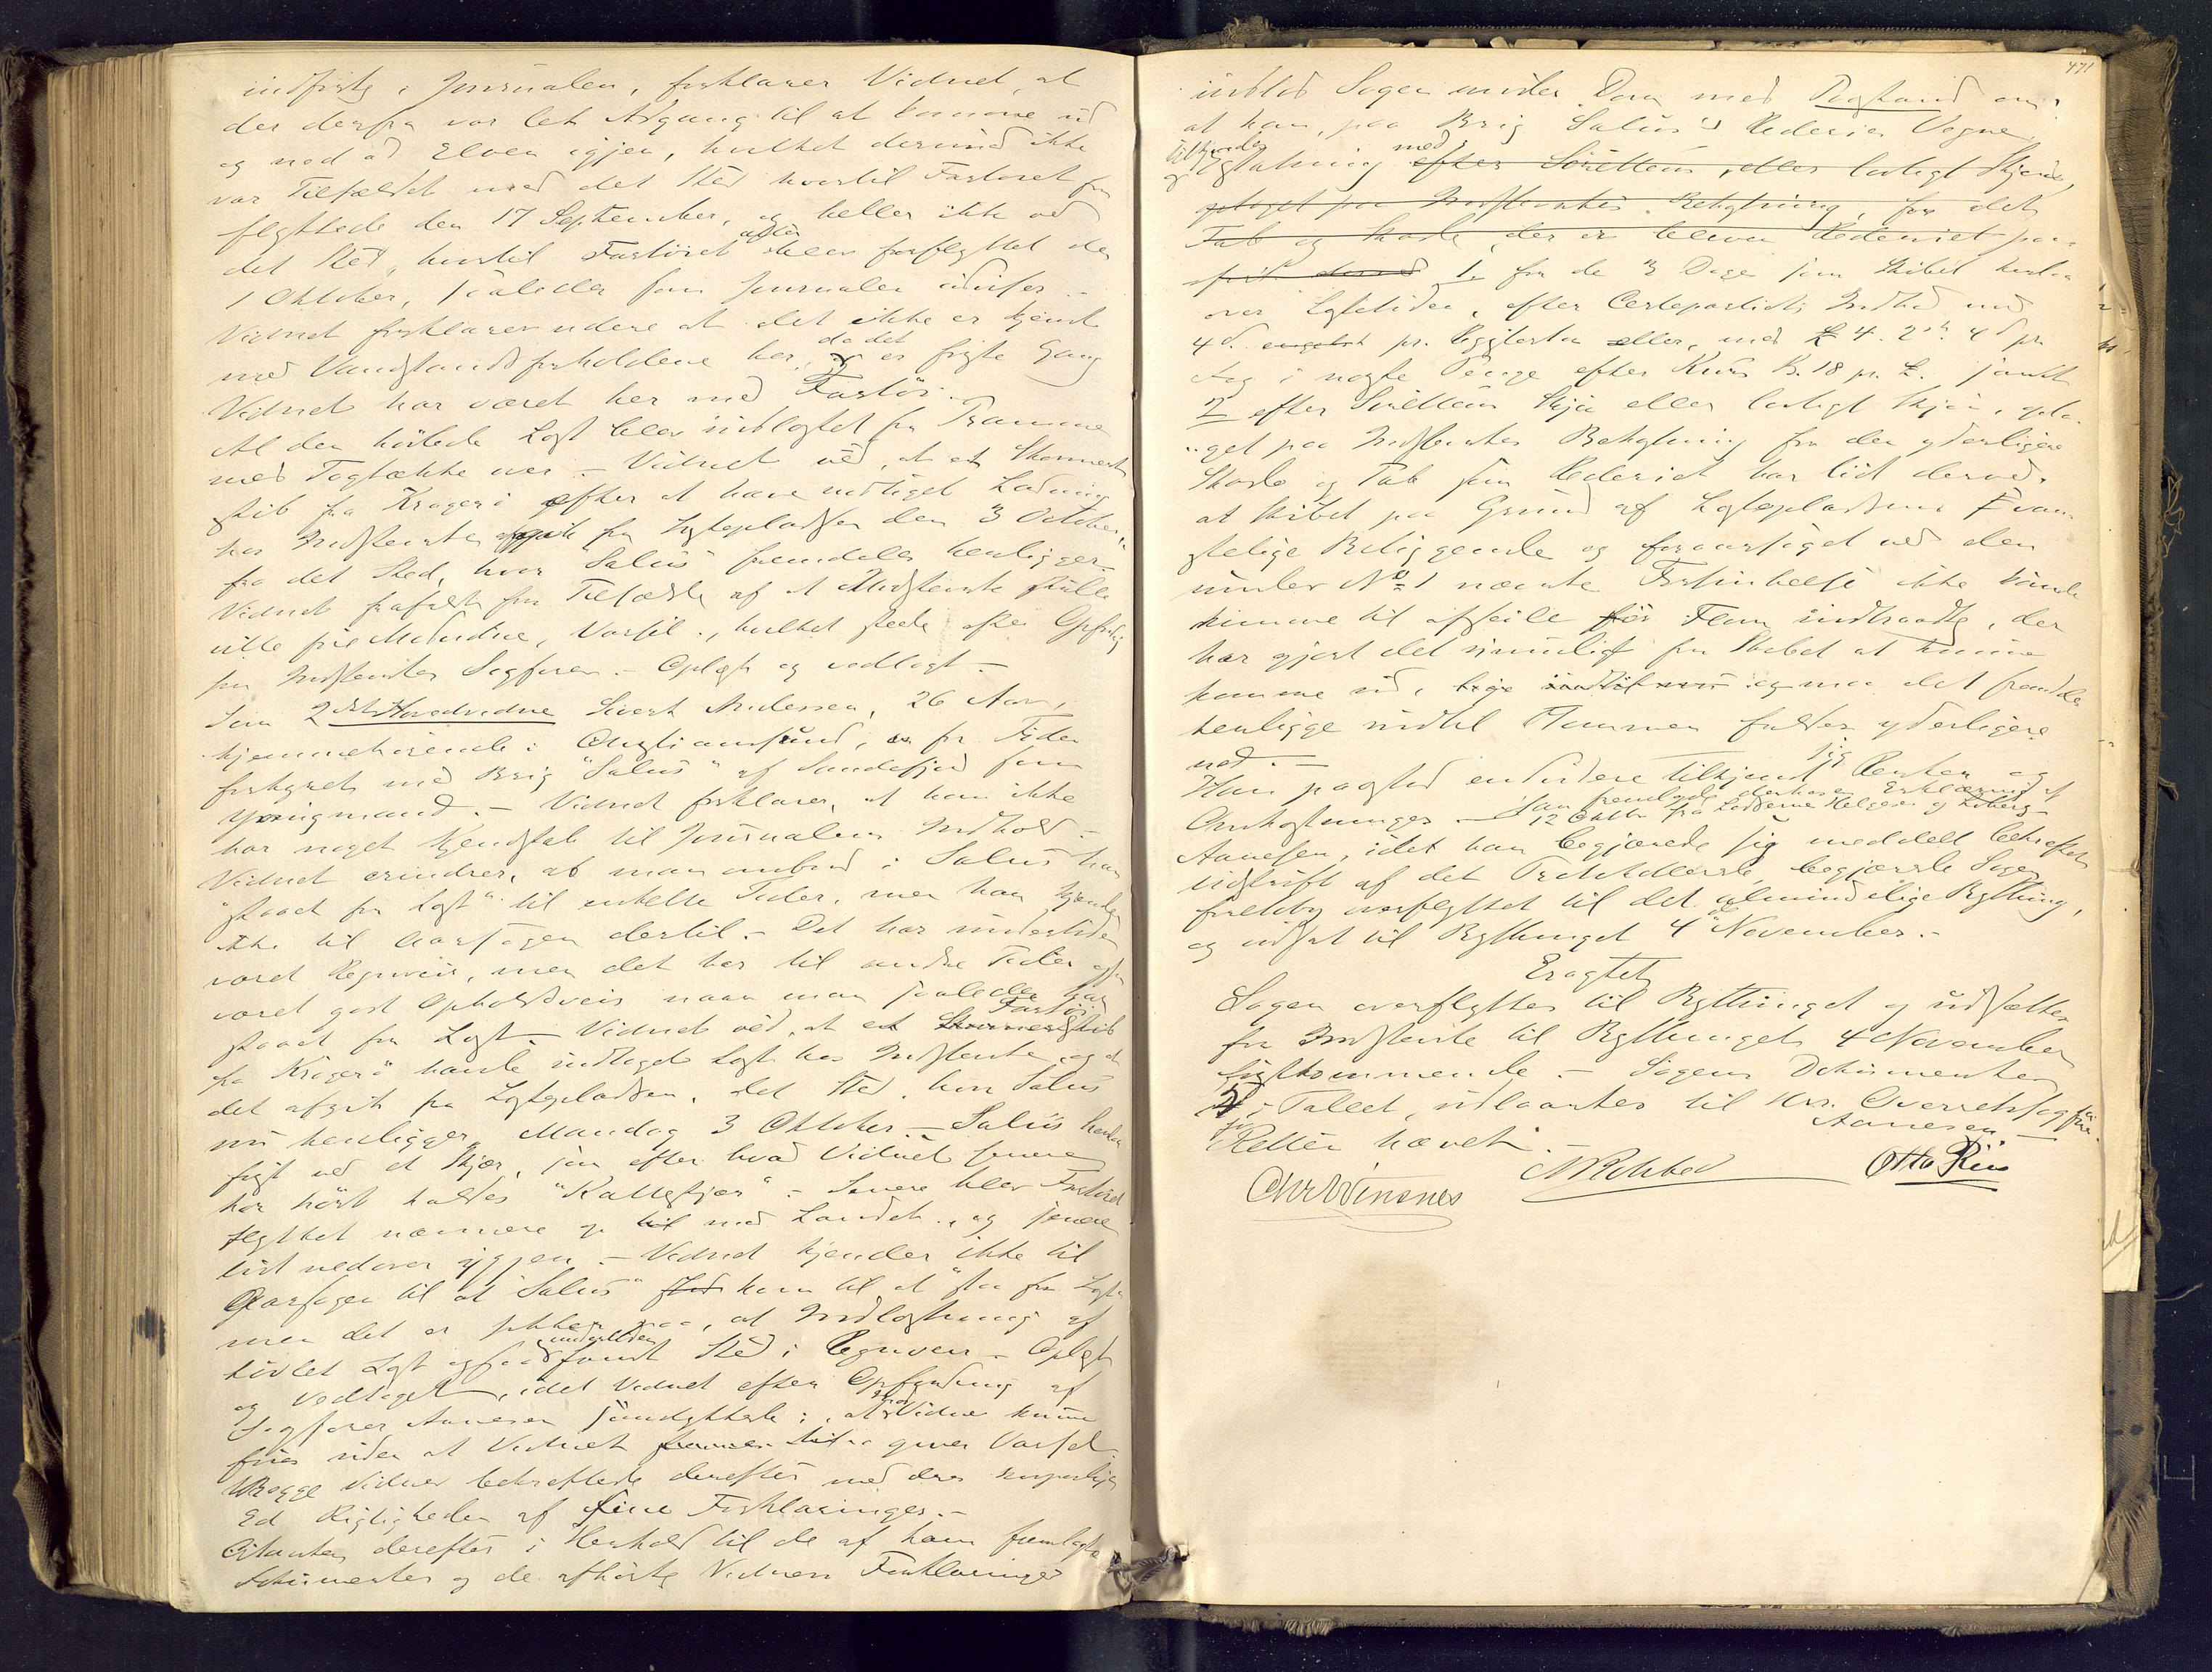 indførte i Journalen, forklarer Vidnet, at
der derfra var let Adgang til at komme ud
og ned ad Elven igjen, hvilket derimod ikke
var Tilfældet med det Sted hvortil Fartøiet
flyttede den 17 September, og heller ikke ved
det Sted, hvortil Fartøiet atter blev forflyttet den
1 Oktober, saaledes som Journalen udviser. -
Vidnet forklarer videre at det ikke er kjendt
med Vandstandsforholdene her, da det er første Gang
Vidnet har været her med Fartøi. -
Al den høvlede Last blev indlastet fra Pramme
med over. - Vidnet ved, at et
skib fra Kragerø efter at have indtaget Ladning
hos Indstevnte afgik fra Lastepladsen den 3 Oktober
fra det Sted, hvor Salus fremdeles henligger. -
Vidnet frafaldt for Tilfælde af at Indstevnte skulle
ville føre Modvidne, Varsel, hvilket skede efter Opfordring
fra Indstevntes Sagfører. - Oplæst og vedtaget. -
Som 2det Hovedvidne Sivert Andersen, 26 Aar,
hjemmehørende i Christiansund, for Tiden
forhyret med Brig "Salus" af Sandefjord som
Yngmand. - Vidnet forklarer, at han ikke
har noget Kjendskab til Journalens Indhold. -
Vidnet erindrer, at man ombord i Salus har
"staaet for Last" til enkelte Tider, men han kjender
ikke til Aarsagen dertil. - Det har undertiden
været Regnveir, men det har til andre Tider ogsaa
været godt Opholdsveir naar man saaledes har
staaet for Last. - Vidnet ved, at et Fartøi
fra Kragerø havde indtaget Last hos Indstevnte, og at
det afgik fra Lastepladsen, det Sted, hvor Salus
nu henligger, Mandag 3 Oktober. - Salus havde
først ved et Skjær, som efter hvad Vidnet senere
har hørt kaldes "Kalvskjær". - Senere blev Fartøiet
flyttet nærmere op til ved Landet, og senere
lidt nedover igjen. - Vidnet kjender ikke til
Aarsagen til at "Salus" kom til at "staa for Last"
men det er sikker paa, at Indlastning af
høvlet Last ogsaa undertiden fandt Sted i Regnveir. - Oplæst
og vedtaget, idet Vidnet efter Opfordring af
Sagfører Aanesen samtykkede i, at Modvidne kunne
føres uden at Vidnet gives Varsel. -
Begge Vidner bekræftede derefter med deres corporlige
Ed Rigtigheden af sine Forklaringer. -
Citanten derefter i Henhold til de af ham fremlagte
Dokumenter og de afhørte Vidners Forklaringer
471
indlod Sagen under Dom med Paastand om:
at han, paa Brig Salus's Rederies Vegne
tilkjendes
Erstatning med efter Søretten eller lovligt Skjøn,
optaget paa Indstevntes Bekostning, for det
Tab og Skade, der er bleven Rederiet paa-
ført derved 1, for de 3 Dage som Skibet henlaa
over Liggetiden, efter Certepartiets Indhold med
4d. engelsk pr. Registerton eller, med £ 4. 2sh 4d pr
Dag i norske Penge efter Kurs Kr. 18 pr. £. samt
2 efter Sørettens Skjøn eller lovligt Skjøn, opta-
get paa Indstevntes Bekostning for den yderligere
Skade og Tab som Rederiet har lidt derved,
at Skibet paa Grund af Lastepladsens
Beliggende og foraarsaget ved den
under No 1 nævnte Forsinkelse ikke kunde
komme til at seile før Flom indtraadte, der
har gjort det umuligt for Skibet at kunne
komme ud, og maa det fremdeles
henligge indtil Flommen falder yderligere
ned. -
Han paastod endvidere tilkjendt sig Renter og
Omkostninger. - Han fremlagde derhos en Erklæring af
12 Oktbr fra Lodserne Helgesen og
Aanesen, idet han begjærede sig meddelt bekræftet
Udskrift af det Passerede, begjærede Sagen
overflyttet til det almindelige Bything,
og udsat til Bythinget 4 November. -
Eragtet
Sagen overflyttes til Bythinget og udsættes
fra Indstevnte til Bythinget 4 November
førstkommende. - Sagens Dokumenter
i Tallet, udlaantes til Hr. Overretssagfører
Aanesen -
Retten hævet. -
Chr Winsnes
Otto Riis